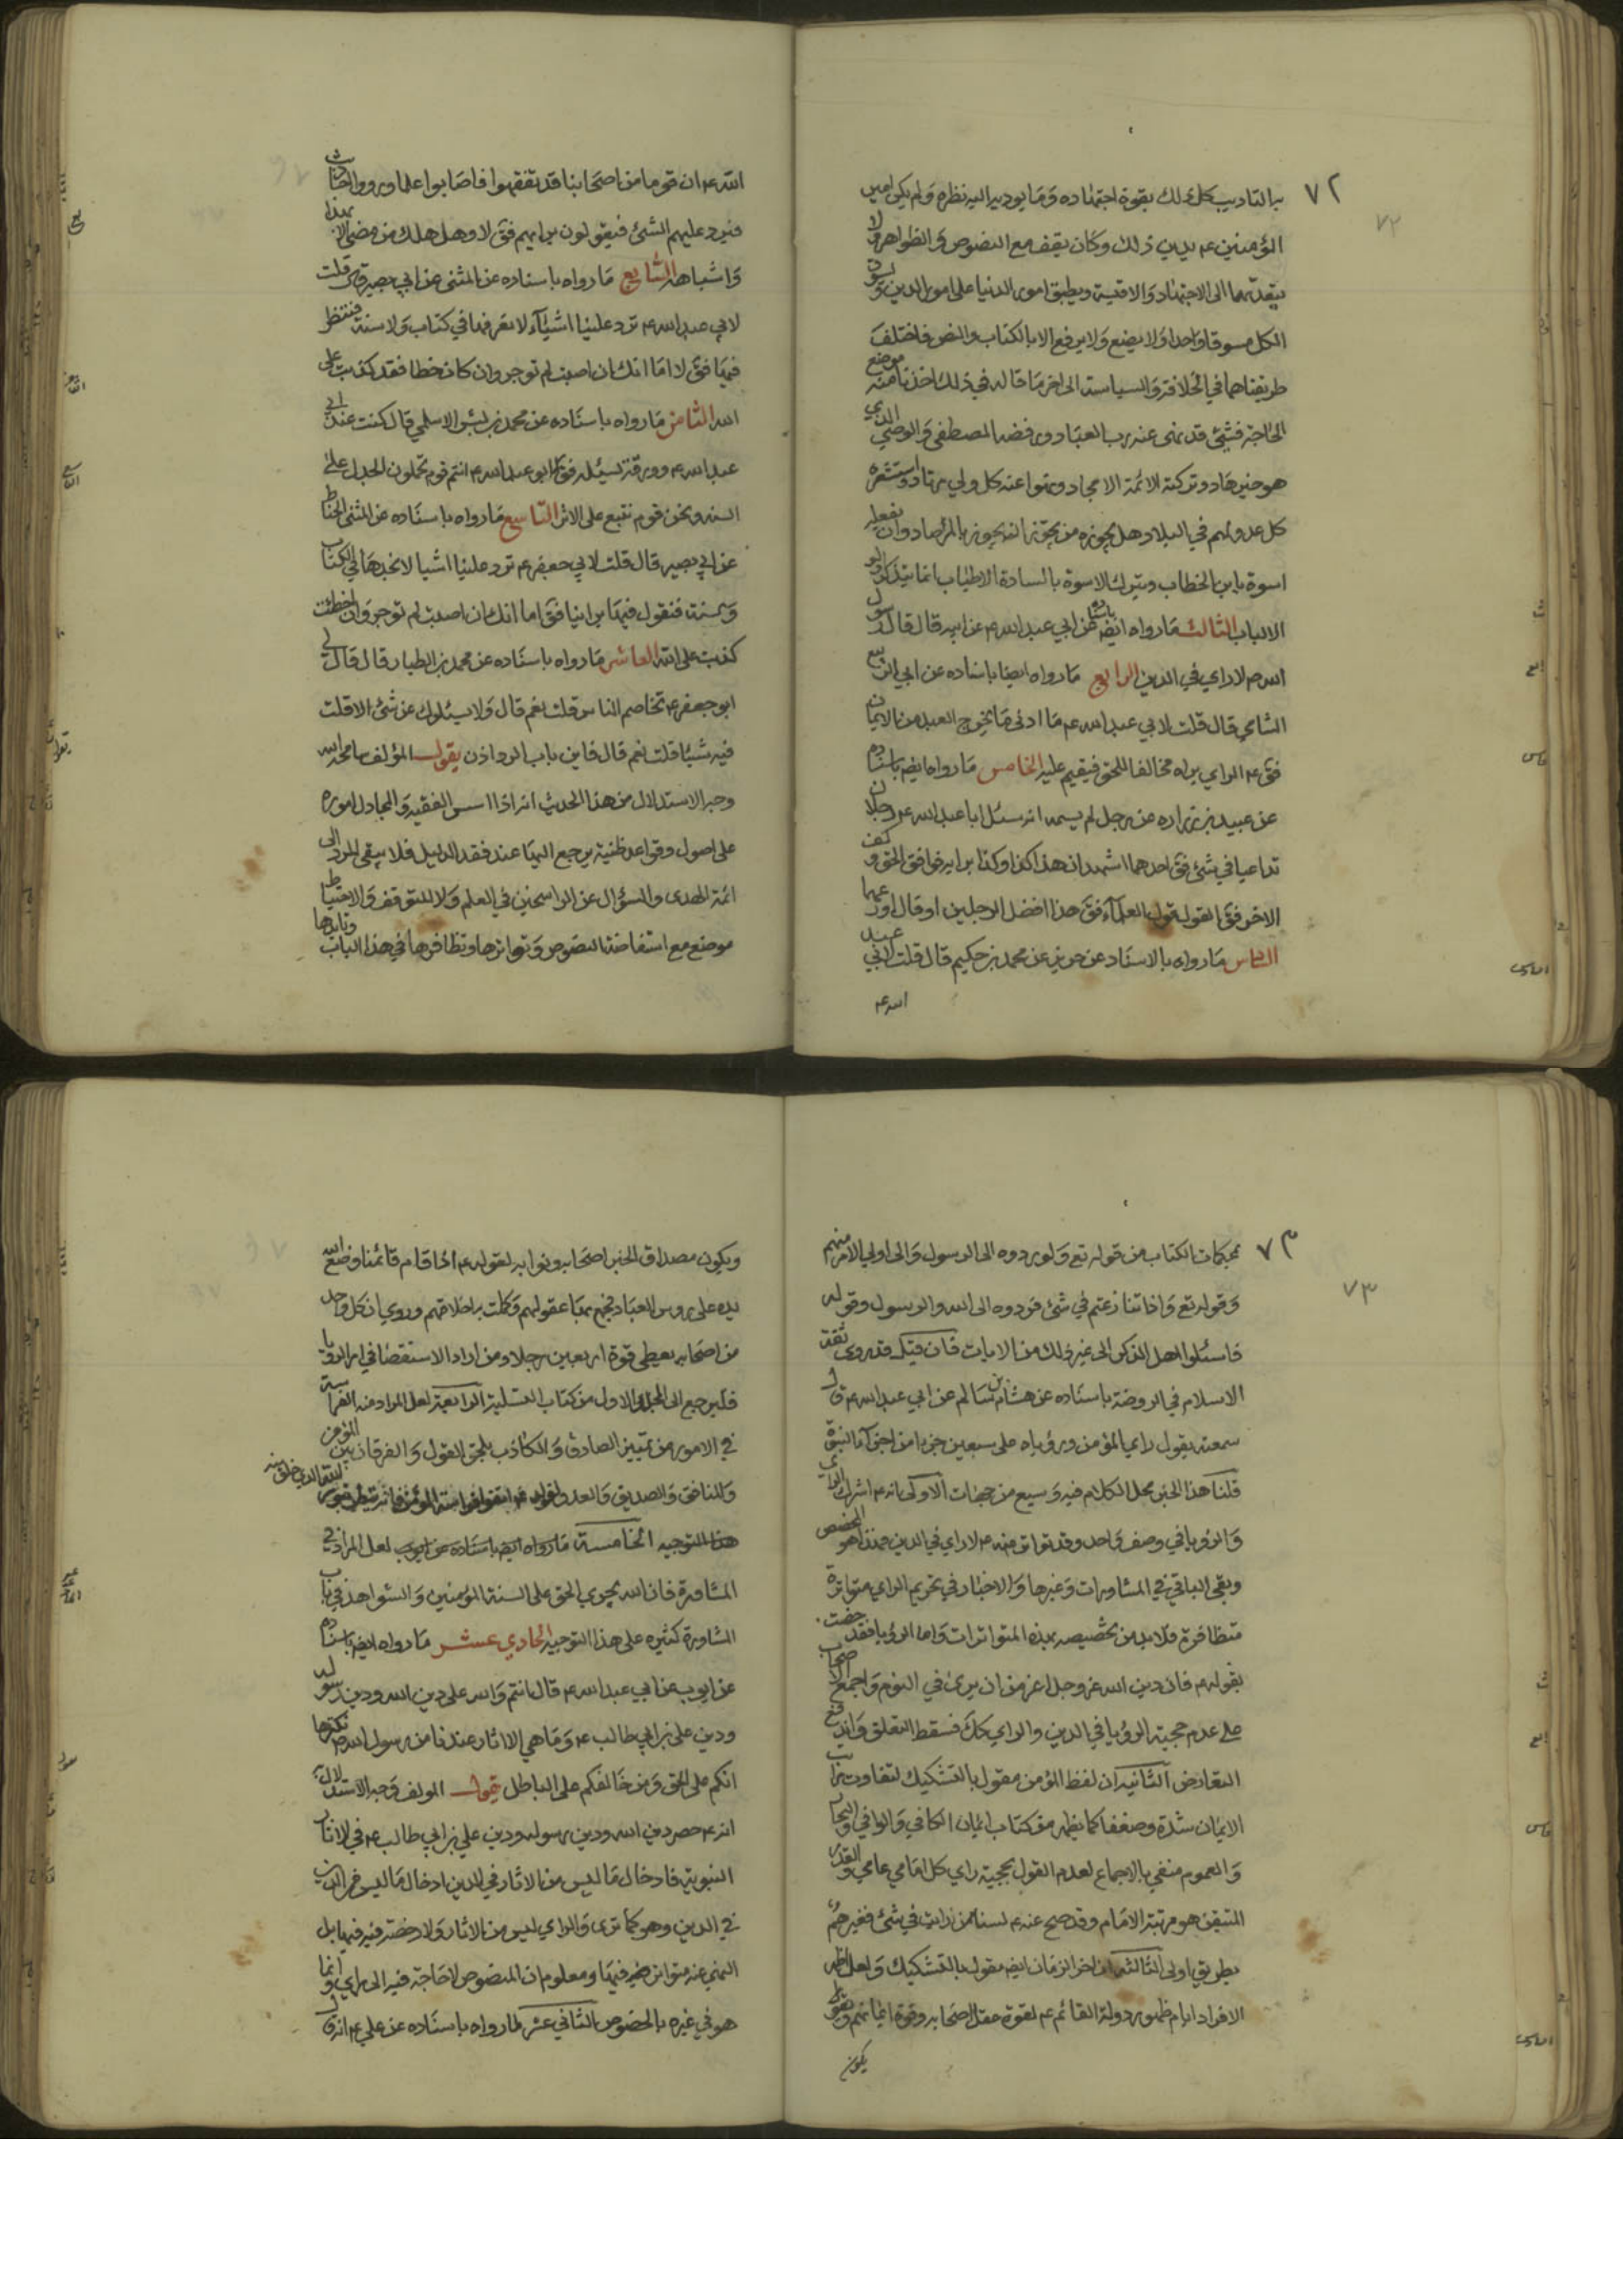 ٧٢
بالتاديب كل ذلك بقوة اجتهاده وما يوديه اليه نظره ولم يكن امير
المؤمنين ع يدين ذلك وكان يقف مع النصوص والظواهر ولا
يتعداهما الى الاجتهاد والاقيسة ويطبق امور الدنيا على امور الدين ويسوق
الكل مسوقا واحدا ولا يضع ولا يرفع الا بالكتاب والنص فاختلف
طريقتاهما في الخلافة والسياسة الى اخر ما قاله في ذلك اخذنا منه موضع
الحاجة فشئ قد نهى عنه رب العباد ورفضه المصطفى والوصي الذي
هو خير هاد وتركته الائمة الامجاد ونهوا عنه كل ولي مرتاد واستشعره
كل عدو لهم في البلاد هل يجوزه من يجوز انه يجوز بالمرصاد وان يفعله
اسوة بابن الخطاب ويترك الاسوة بالسادة الاطياب انما يتذكر اولو
الالباب الثالث ما رواه ايضا باسناده عن ابي عبد الله ع عن ابيه قال قال رسول
الله ص لا راي في الدين الرابع ما رواه ايضا باسناده عن ابي الربيع
الشامي قال قلت لابي عبد الله ع ما ادنى ما يخرج العبد من الايمان
فق ع الراي يراه مخالفا للحق فيقيم عليه الخامس ما رواه ايضا باسناده
عن عبيد بن زرارة عن رجل لم يسمه انه سئل ابا عبد الله ع رجلان
تداعيا في شئ فق احدهما اشهد ان هذا كذا وكذا برايه فوافق الحق وكف
الاخر فق القول قول العلماء فق هذا افضل الرجلين او قال اورعهما
السادس ما رواه بالاسناد عن حريز عن محمد بن حكيم قال قلت لابي عبد
الله ع
الله ع ان قوما من اصحابنا قد تفقهوا فاصابوا علما ورووا احاديث
فيرد عليهم الشئ فيقولون برايهم فق لا وهل هلك من مضى الا بهذا
واشباهه السابع ما رواه باسناده عن المثنى عن ابي بصير قال قلت
لابي عبد الله ع ترد علينا اشياء لا نعرفها في كتاب ولا سنة فننظر
فيها فق لا اما انك ان اصبت لم توجر وان كان خطا فقد كذبت على
الله الثامن ما رواه باسناده عن محمد بن بشر الاسلمي قال كنت عند ابي
عبد الله ع وورقة يسئله فق ابو عبد الله ع انتم قوم تحملون الحديث على
السنة ونحن قوم نتبع على الاثر التاسع ما رواه باسناده عن المثنى الحناط
عن ابي بصير قال قلت لابي جعفر ع ترد علينا اشيا لا نجدها في الكتاب
وسنة فنقول فيها براينا فق اما انك ان اصبت لم توجر وان اخطئت
كذبت على الله العاشر ما رواه باسناده عن محمد بن الطيار قال قال لي
ابو جعفر ع تخاصم الناس قلت نعم قال ولا يسئلونك عن شئ الا قلت
فيه شيئا قلت نعم قال فاين باب الرد اذن يقول المؤلف سامحه الله
وجه الاستدلال من هذا الحديث انه اذا اسس الفقيه والمجادل اموره
على اصول وقواعد ظنية يرجع اليها عند فقد الدليل فلا يبقى للرد الى
ائمة الهدى والسؤال عن الراسخين في العلم ولا للتوقف والاحتياط
موضع مع استفاضة النصوص وتواترها وتظافرها في هذا الباب وتايدها
٧٣
بمحكمات الكتاب من قوله تع ولو ردوه الى الرسول والى اولي الامر منهم
وقوله تع واذا تنازعتم في شئ فردوه الى الله والرسول وقوله
فاسئلوا اهل الذكر الى غير ذلك من الايات فان قيل قد روى ثقة
الاسلام في الروضة باسناده عن هشام بن سالم عن ابي عبد الله ع قال
سمعته يقول راي المؤمن ورؤياه على سبعين جزءا من اجزاء النبوة
قلنا هذا الخبر محل الكلام فيه وسيع من جهات الاولى انه ع اشرك الراي
والرؤيا في وصف واحد وقد تواتر منه ع لا راي في الدين فهذا هو المخصص
وبقي الباقي في المشاورات وغيرها والاخبار في تحريم الراي متواترة
متظافرة فلا بد من تخصيصه بهذه المتواترات واما الرؤيا فقد خصت
بقوله ع فان دين الله عز وجل اعز من ان يرى في النوم واجمع الاصحاب
على عدم حجية الرؤيا في الدين والراي كك فسقط التعلق واندفع
التعارض الثانية ان لفظ المؤمن مقول بالتشكيك لتفاوت مراتب
الايمان شدة وضعفا كما يظهر من كتاب ايمان الكافي والوافي والبحار
والعموم منفي بالاجماع لعدم القول بحجية راي كل امامي عامي والقدر
المتيقن هو مرتبة الامام وقد صح عنه ع لسنا من ارايت في شئ فغيرهم
بطريق اولى الثالثة ان اخر الزمان ايضا مقول بالتشكيك ولعل اظهر
الافراد ايام ظهور دولة القائم ع لقوة عقل اصحابه وقوة ايمانهم وهو ظ
يكون
ويكون مصداق الخبر اصحابه ونوابه لقوله ع اذا قام قائمنا وضع الله
يده على رؤس العباد فجمع بها عقولهم وكملت به احلامهم وروي ان كل واحد
من اصحابه يعطى قوة اربعين رجلا ومن اراد الاستقصا في امر الرؤيا
فليرجع الى المجلد الاول من كتاب التسلية الرابعة لعل المراد منه الفراسة
في الامور من تمييز الصادق والكاذب بلحن القول والفرقان بين المؤمن
والمنافق والصديق والعدو لقوله ع اتقوا فراسة المؤمن فانه ينظر بنور
الله الذي خلق منه
هذا التوجيه الخامسة ما رواه ايضا باسناده عن ايوب لعل المراد في
المشاورة فان الله يجري الحق على السنة المؤمنين والشواهد في باب
المشاورة كثيره على هذا التوجيه الحادي عشر ما رواه ايضا باسناده
عن ايوب عن ابي عبد الله ع قال انتم والله على دين الله ودين رسوله
ودين علي بن ابي طالب ع وما هي الا اثار عندنا من رسول الله ص نكنزها
انكم على الحق ومن خالفكم على الباطل يقول المولف وجه الاستدلال
انه ع حصر دين الله ودين رسوله ودين علي بن ابي طالب ع في الاثار
النبوية فادخال ما ليس من الاثار في الدين ادخال ما ليس من الدين
في الدين وهو كما ترى والراي ليس من الاثار ولا رخصة فيه فيها بل
النهي عنه متواتر فيها ومعلوم ان المنصوص لا حاجة فيه الى راي وانما
هو في غيره بالخصوص الثاني عشر ما رواه باسناده عن علي ع انه قال